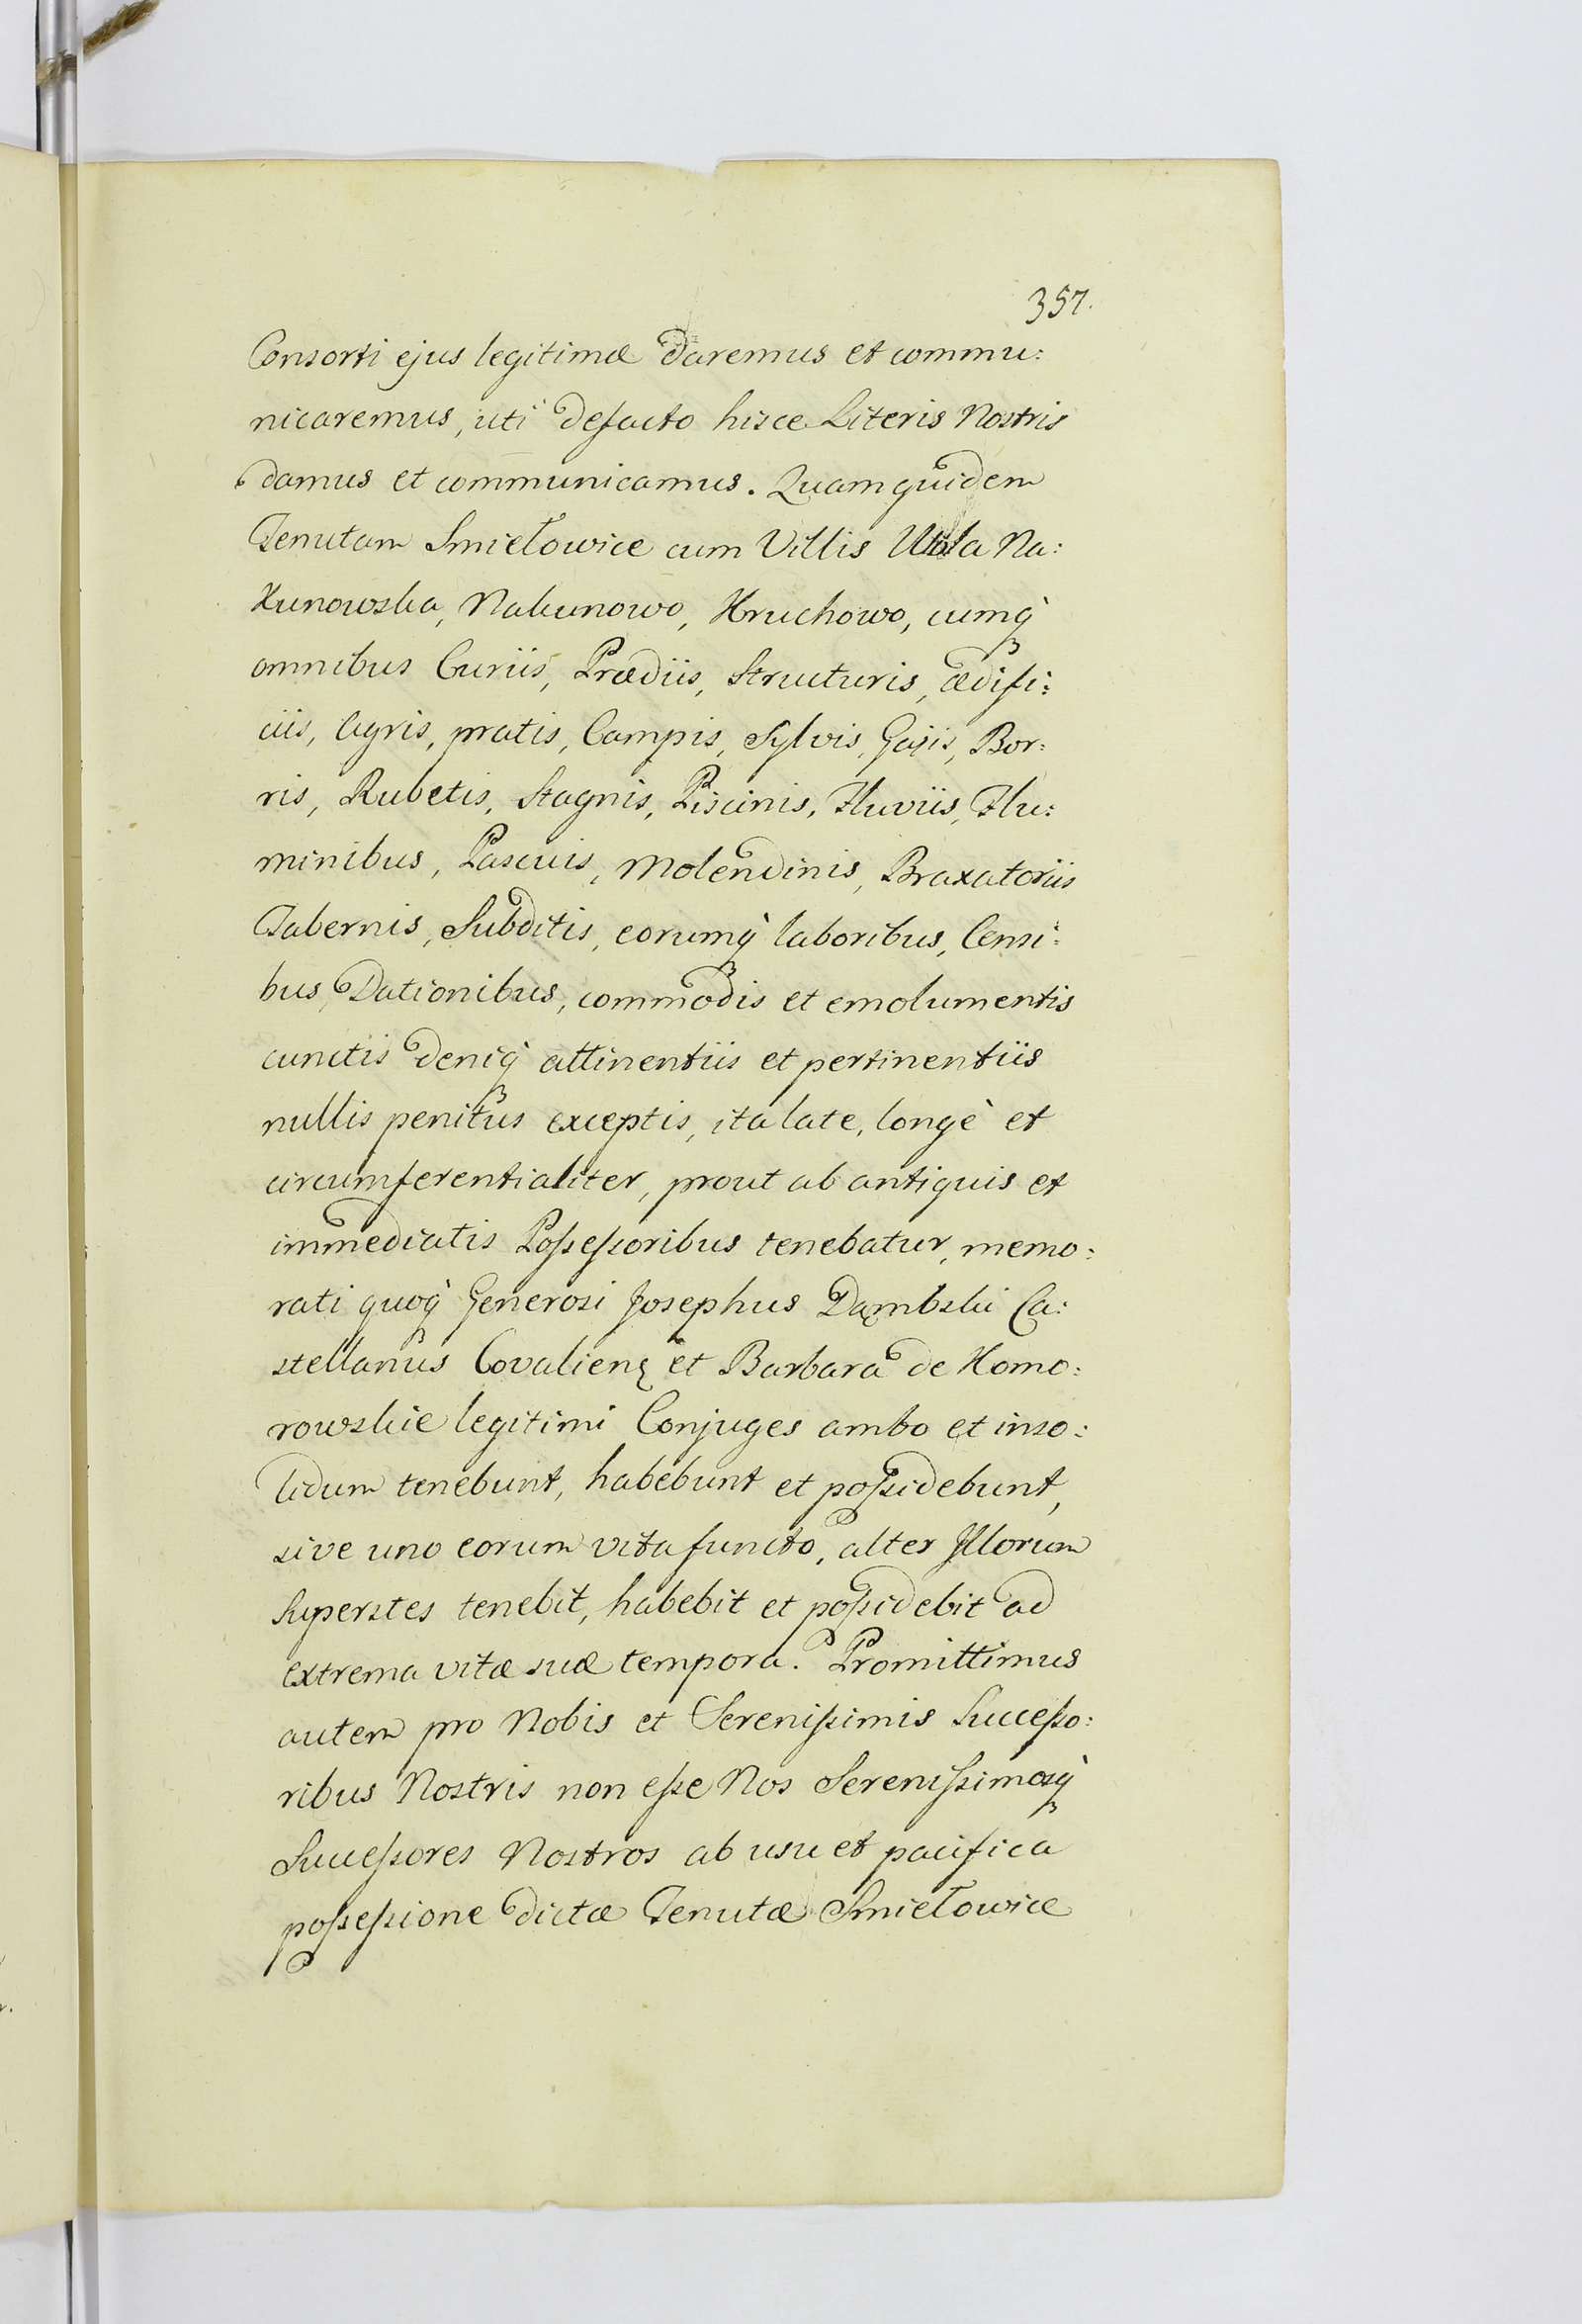 357.
Consorti ejus legitimæ daremus et commu:
nicaremus, uti defacto hisce Literis Nostris
damus et communicamus. Quam quidem
Tenutam Smiełowice cum Villis Wola Na:
kunowska, Nakunowo, Kruchowo, cumq̀
omnibus Curiis, Prædiis, Structuris, ædifi:
ciis, Agris, pratis, Campis, Sylvis, Gajis, Bor:
ris, Rubetis, Stagnis, Piscinis, Fluviis, Flu:
minibus, Pascuis, Molendinis, Braxatoriis
Tabernis, Subditis, eorumq̀ laboribus, Censi:
bus, Dationibus, commodis et emolumentis
cunctis deniq̀ attinentiis et pertinentiis
nullis penitus exceptis, ita late, longè et
circumferentialiter, prout ab antiquis et
immediatis Poſseſsoribus tenebatur, memo:
rati quoq̀ Generosi Josephus Dąmbski Ca:
stellanus Covalienȩ et Barbara de Komo:
rowskie legitimi Conjuges ambo et inso:
lidum tenebunt, habebunt et poſsidebunt,
sive uno eorum vita functo, alter Jllorum
Superstes tenebit, habebit et poſsidebit ad
extrema vitæ suæ tempora. Promittimus
autem pro Nobis et Sereniſsimis Succeſso:
ribus Nostris non eſse Nos Sereniſsimosq̀
Succeſsores Nostros ab usu et pacifica
poſseſsione dictæ Tenutæ Smiełowice